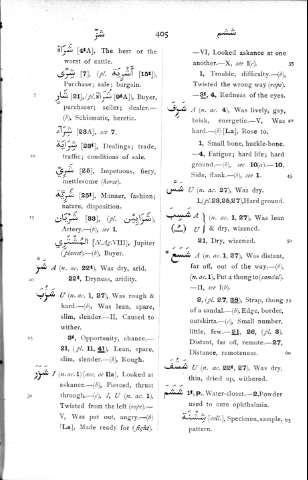 شزّ 405 شسم
شَرَاة [4ᵗA]. The best or the
worst of cattle.
شِرًى [7]. (pl. أَشْرِيَة [15ᵗ]),
Purchase; sale; bargain.
شَارٍ [21], (pl. شُرَاة [9ᵗA]), Buyer,
purchaser; seller; dealer.—
(b), Schismatic, heretic.
[23A], see 7.
[23ᵗ], Dealings; trade,
traffic; conditions of sale.
[25]. Impetuous, fiery,
mettlesome (horse).
[25ᵗ], Manner, fashion;
nature, disposition.
شِرْيَان [33], (pl. شَرَايِين),
Artery.—(b), see 1.
المُشْتَرِي [N.Ag.VIII], Jupiter
(planet).—(b), Buyer.
A (n. ac. 22ᵗ), Was dry, arid.
22ᵗ, Dryness, aridity.
شَزَب U (n. ac. 1, 27), Was rough &
hard.—(b), Was lean, spare,
slim, slender.—II, Caused to
wither.
3ᵗ, Opportunity, chance.—
21, (pl. 11, 41), Lean, spare,
slim, slender.—(b), Rough.
شَزَر I (n. ac. 1) (acc. or Ila), Looked at
askance.—(b), Pierced, thrust
through.—(c), I, U (n. ac. 1),
Twisted from the left (rope).—
V, Was put out, angry.—(b)
[La], Made ready for (fight).
—VI, Looked askance at one
another.—X, see I(c).
1, Trouble, difficulty.—(b),
Twisted the wrong way (rope).
—3ᵗ, 4, Redness of the eyes.
A (n. ac. 4), Was lively, gay,
brisk, energetic.—V, Was
hard.—(b) [La], Rose to.
1, Small bone, huckle-bone.
—4, Fatigue; hard life; hard
ground.—(b), see 10(a).—10,
Side, flank.—(b), see 1.
شَسّ U (n. ac. 27), Was dry.
1, (pl. 23, 25, 27), Hard ground.
شَسَب A (n. ac. 1, 27), Was lean
U & dry, wizened.
21, Dry, wizened.
شَسَع A (n. ac. 1, 27), Was distant,
far off, out of the way.—(b),
(n. ac. 1), Put a thong to (sandal).
—II, see I(b).
2, (pl. 27, 39), Strap, thong
of a sandal.—(b), Edge, border,
outskirts.—(c), Small number,
little, few.—21, 26, (pl. 3),
Distant, far off, remote.—27,
Distance, remoteness.
شَسَف U (n. ac. 22ᵗ, 27), Was dry,
thin, dried up, withered.
1ᵗ, P., Water-closet.—2, Powder
used to cure ophthalmia.
[coll.], Specimen, sample,
pattern.